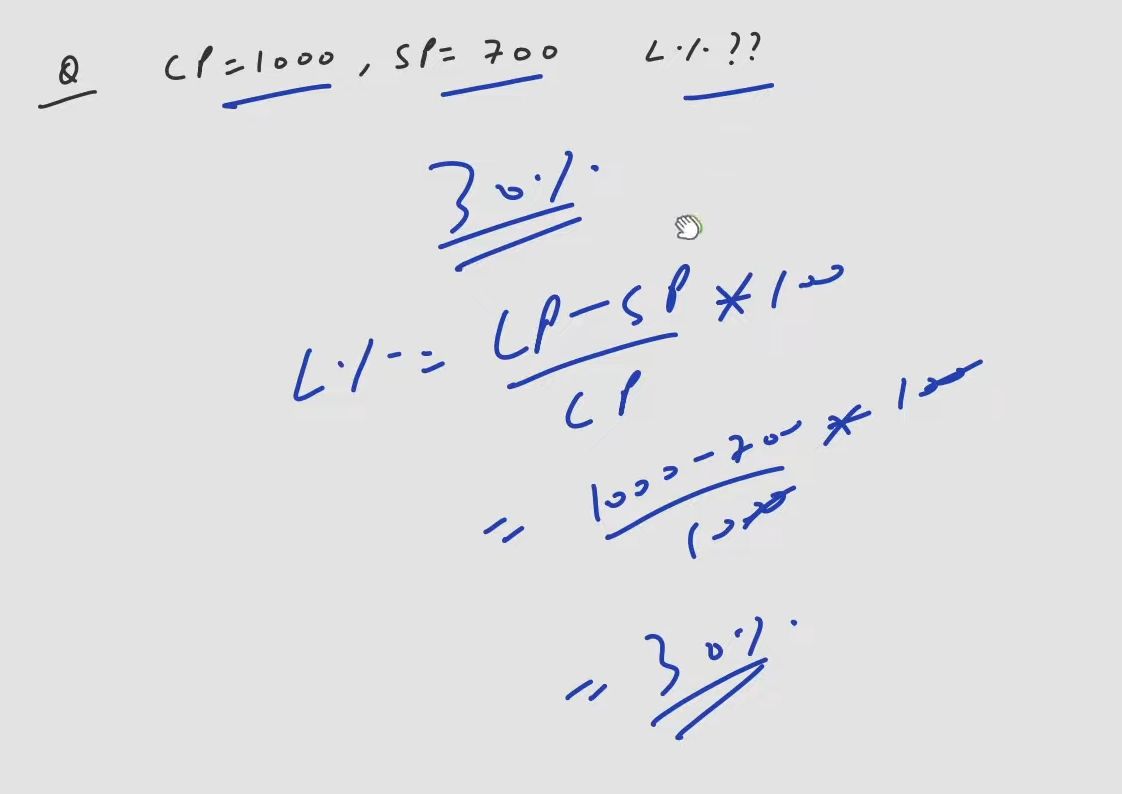 Q CP=1000, SP=700 L%??
30%
L% = CP-SP/CP * 100
= 1000-700/1000 * 100
= 30%